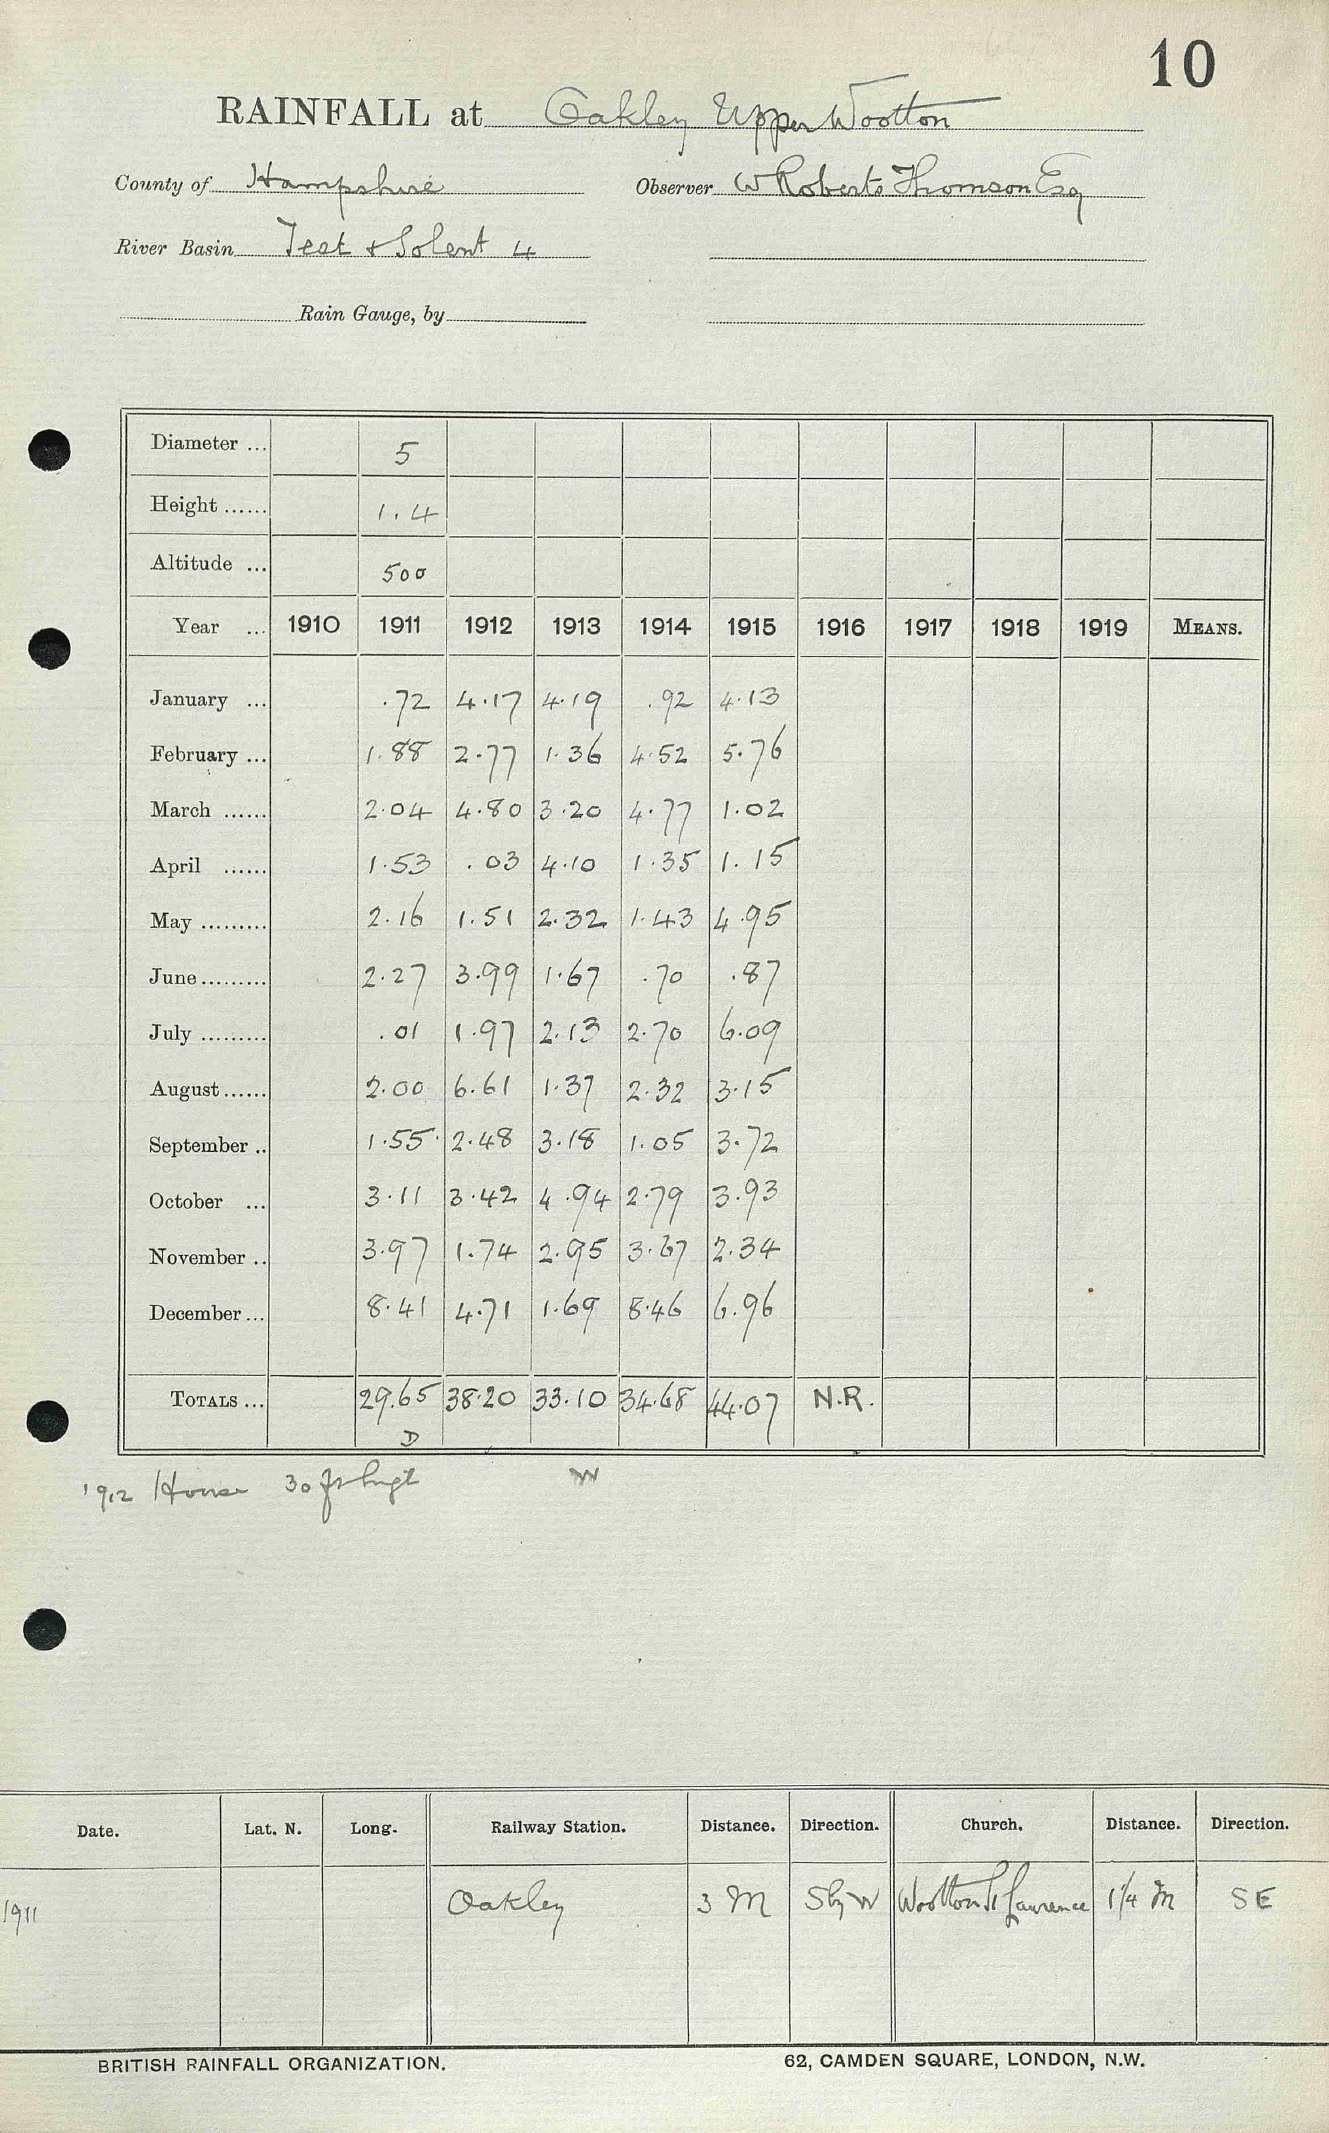 10
RAINFALL at Oakley Upper Wootton
County of Hampshire Observer W Roberts Thomson Esq
River Basin Test & Solent 4
Rain Gauge, by
Diameter ... 5
Height ...... 1.4
Altitude ... 500
Year ... 1910 1911 1912 1913 1914 1915 1916 1917 1918 1919 MEANS.
January ... .72 4.17 4.19 .92 4.13
February ... 1.88 2.77 1.36 4.52 5.76
March ...... 2.04 4.80 3.20 4.77 1.02
April ...... 1.53 .03 4.10 1.35 1.15
May ......... 2.16 1.51 2.32 1.43 4.95
June ......... 2.27 3.99 1.67 .70 .87
July ......... .01 1.97 2.13 2.70 6.09
August ...... 2.00 6.61 1.37 2.32 3.15
September .. 1.55 2.48 3.18 1.05 3.72
October ... 3.11 3.42 4.94 2.79 3.93
November .. 3.97 1.74 2.95 3.67 2.34
December ... 8.41 4.71 1.69 8.46 6.96
TOTALS ... 29.65 38.20 33.10 34.68 44.07 N.R.
D
1912 House 30 ft
W
Date. Lat. N. Long. Railway Station. Distance. Direction. Church. Distance. Direction.
1911 Oakley 3 M S by W Wootton St Lawrence 1 1/4 M SE
BRITISH RAINFALL ORGANIZATION. 62, CAMDEN SQUARE, LONDON, N.W.